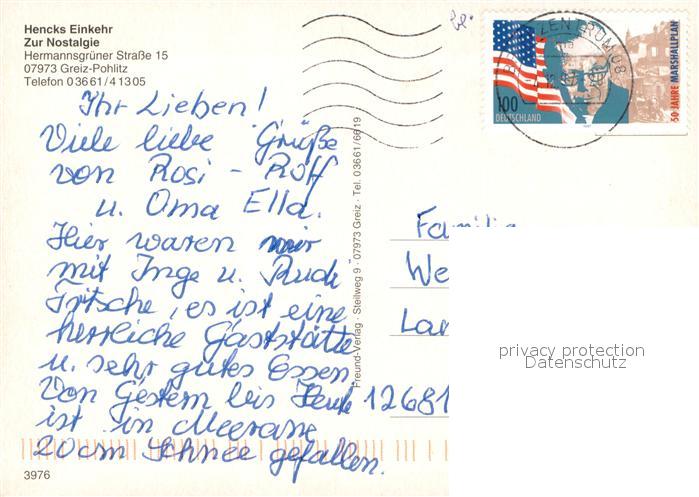 Hencks Einkehr
Zur Nostalgie
Hermannsgrüner Straße 15
07973 Greiz-Pohlitz
Telefon 03661/41305
Ihr Lieben!
Viele liebe Grüße
von Rosi - Rolf
u. Oma Ella.
Hier waren wir
mit Inge u. Rudi
Fritsche, es ist eine
herrliche Gaststätte
u. sehr gutes Essen.
Von Gestern bis Heute
ist in Meerane
20cm Schnee gefallen.
3976
Freund-Verlag · Steilweg 9 · 07973 Greiz · Tel. 03661/6619
100
DEUTSCHLAND
50 JAHRE MARSHALLPLAN
Familie
We
Lan
12681
privacy protection
Datenschutz